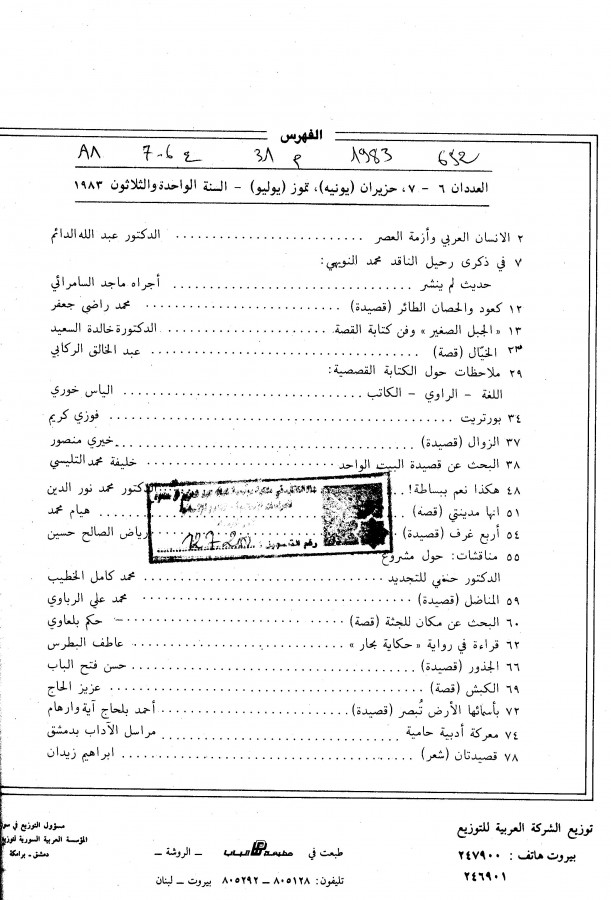 الفهرس
652 1983 م 31 ع 6-7 A8
العددان ٦ - ٧، حزيران (يونيه)، تموز (يوليو) - السنة الواحدة والثلاثون ١٩٨٣
٢ الانسان العربي وأزمة العصر ........ الدكتور عبد الله الدائم
٧ في ذكرى رحيل الناقد محمد النويهي:
حديث لم ينشر ........ أجراه ماجد السامرائي
١٢ كعود والحصان الطائر (قصيدة) ........ محمد راضي جعفر
١٣ «الجبل الصغير» وفن كتابة القصة ........ الدكتورة خالدة السعيد
٢٣ الخيّال (قصة) ........ عبد الخالق الركابي
٢٩ ملاحظات حول الكتابة القصصية:
اللغة - الراوي - الكاتب ........ الياس خوري
٣٤ بورتريت ........ فوزي كريم
٣٧ الزوال (قصيدة) ........ خيري منصور
٣٨ البحث عن قصيدة البيت الواحد ........ خليفة محمد التليسي
٤٨ هكذا نعم ببساطة! ........ الدكتور محمد نور الدين
٥١ انها مدينتي (قصة) ........ هيام محمد
٥٤ أربع غرف (قصيدة) ........ رياض الصالح حسين
٥٥ مناقشات: حول مشروع
الدكتور حنفي للتجديد ........ محمد كامل الخطيب
٥٩ المناضل (قصيدة) ........ محمد علي الرباوي
٦٠ البحث عن مكان للجثة (قصة) ........ حكم بلعاوي
٦٢ قراءة في رواية «حكاية بحار» ........ عاطف البطرس
٦٦ الجذور (قصيدة) ........ حسن فتح الباب
٦٩ الكبش (قصة) ........ عزيز الحاج
٧٢ بأسمائها الأرض تُبصر (قصيدة) ........ أحمد بلحاج آية وارهام
٧٤ معركة أدبية حامية ........ مراسل الآداب بدمشق
٧٨ قصيدتان (شعر) ........ ابراهيم زيدان
توزيع الشركة العربية للتوزيع
بيروت هاتف : ٢٤٧٩٠٠
٢٤٦٩٠١
طبعت في - الروشة -
تليفون: ٨٠٥١٢٨ - ٨٠٥٢٩٢ بيروت - لبنان
مسؤول التوزيع في سور
المؤسسة العربية السورية لتوزيع
دمشق - برامكة